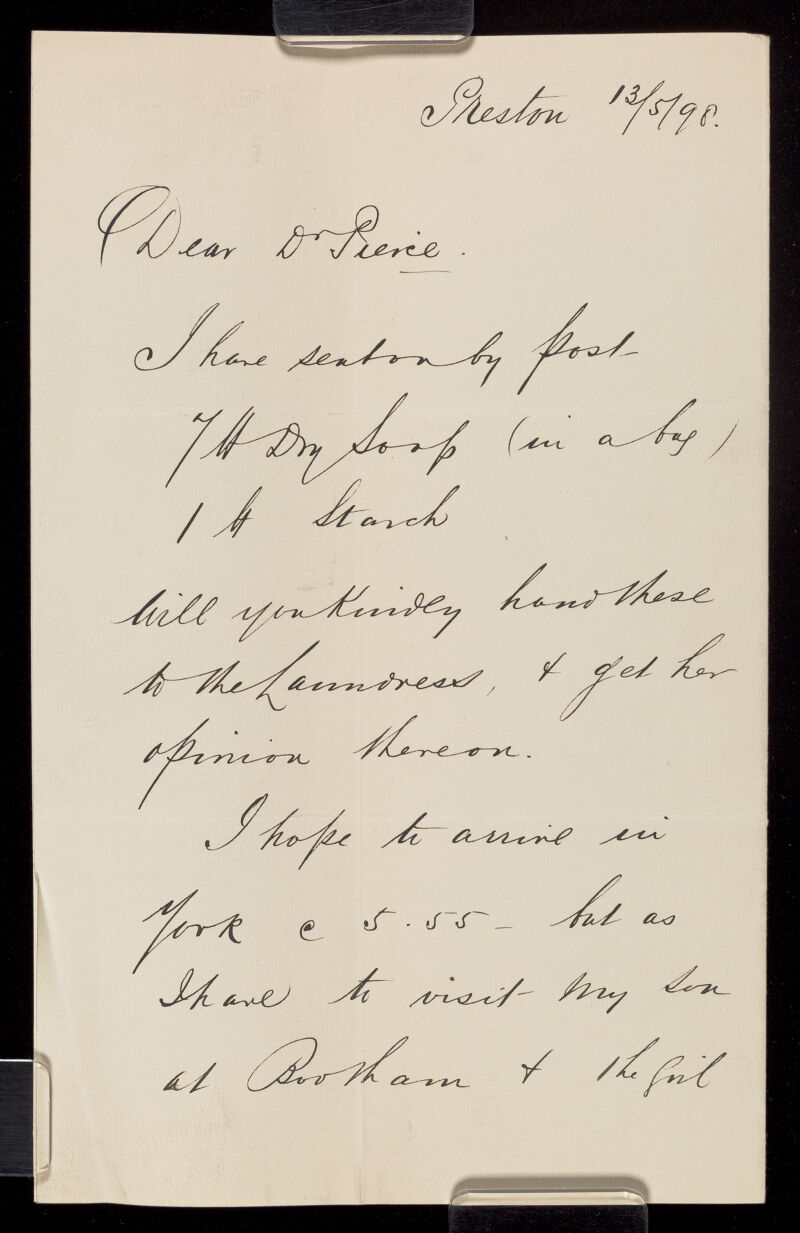 Preston 13/5/98.
Dear Dr Pierce.
I have sent on by post
7 lb Dry Soap (in a bag)
1 lb Starch
Will you Kindly hand these
to the Laundress, & get her
opinion thereon.
I hope to arrive in
York c 5.55 - but as
I have to visit my son
at Bootham & the Girl